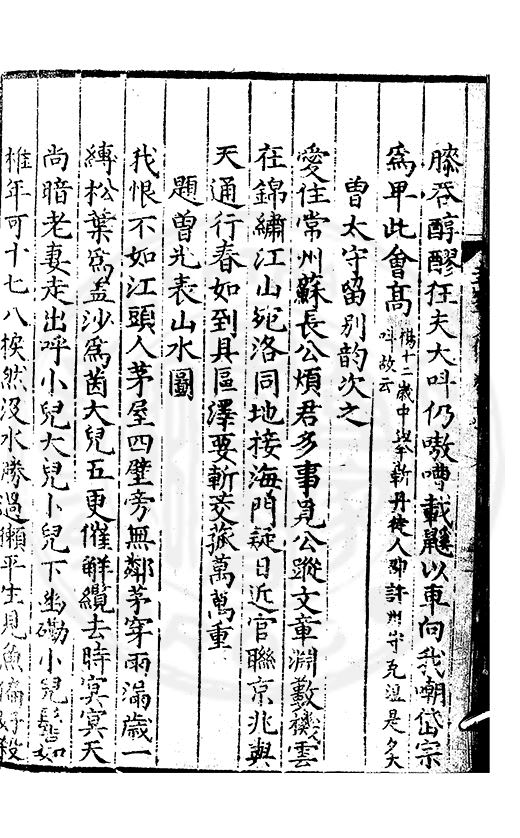 滕吞醇醪狂夫大呌仍嗷嘈載鼷以車向我嘲岱宗
爲卑此會髙
楊十二歲中舉新丹徒人耶許州守克溫是夕大
呌故云
曾太守留別韵次之
愛住常州蘇長公煩君多事覓公蹤文章淵藪
雲
在錦繡江山宛洛同地接海門疑日近官聯京兆與
天通行春如到具區澤要斬茭菰萬萬重
題曾先表山水圖
我恨不如江頭人茅屋四壁旁無鄰茅穿雨漏歲一
縛松葉爲蓋沙爲茵大兒五更催解纜去時㝠㝠天
尚暗老妻走出呼小兒大兒小兒下幽磡小兒髻如
椎年可十七八揆然沒水勝過獺平生見魚偏好殺